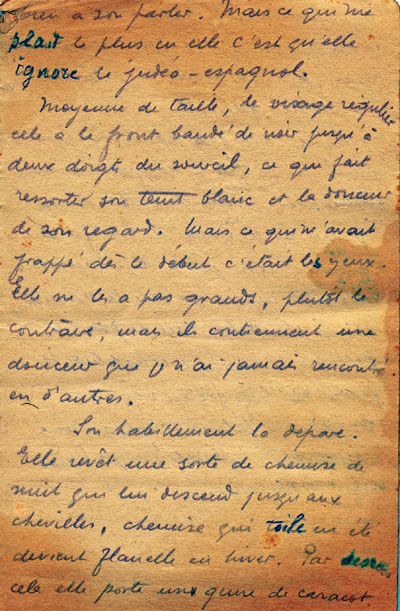 bien à son parler. Mais ce qui me
plaît le plus en elle c'est qu'elle
ignore le judéo-espagnol.
Moyenne de taille, le visage régulier
elle a le front bandé de noir jusqu'à
deux doigts du sourcil, ce qui fait
ressortir son teint blanc et la douceur
de son regard. Mais ce qui m'avait
frappé dès le début c'était les yeux.
Elle ne les a pas grands, plutôt le
contraire, mais ils contiennent une
douceur que je n'ai jamais rencontré
en d'autres.
Son habillement la dépare.
Elle revêt une sorte de chemise de
nuit qui lui descend jusqu'aux
chevilles, chemise qui toile en été
devient flanelle en hiver. Par dessus
cela elle porte une genre de caraco